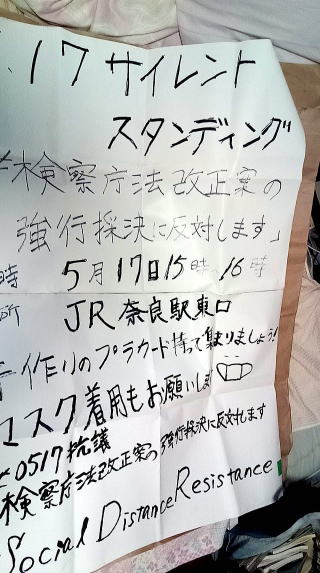 .17 サイレント
スタンディング
#検察庁法改正案の
強行採決に反対します」
時 5月17日15時~16時
所 JR奈良駅東口
手作りのプラカード持って集まりましょう!
マスク着用もお願いします
#0517抗議
検察庁法改正案の強行採決に反対します
Social Distance Resistance